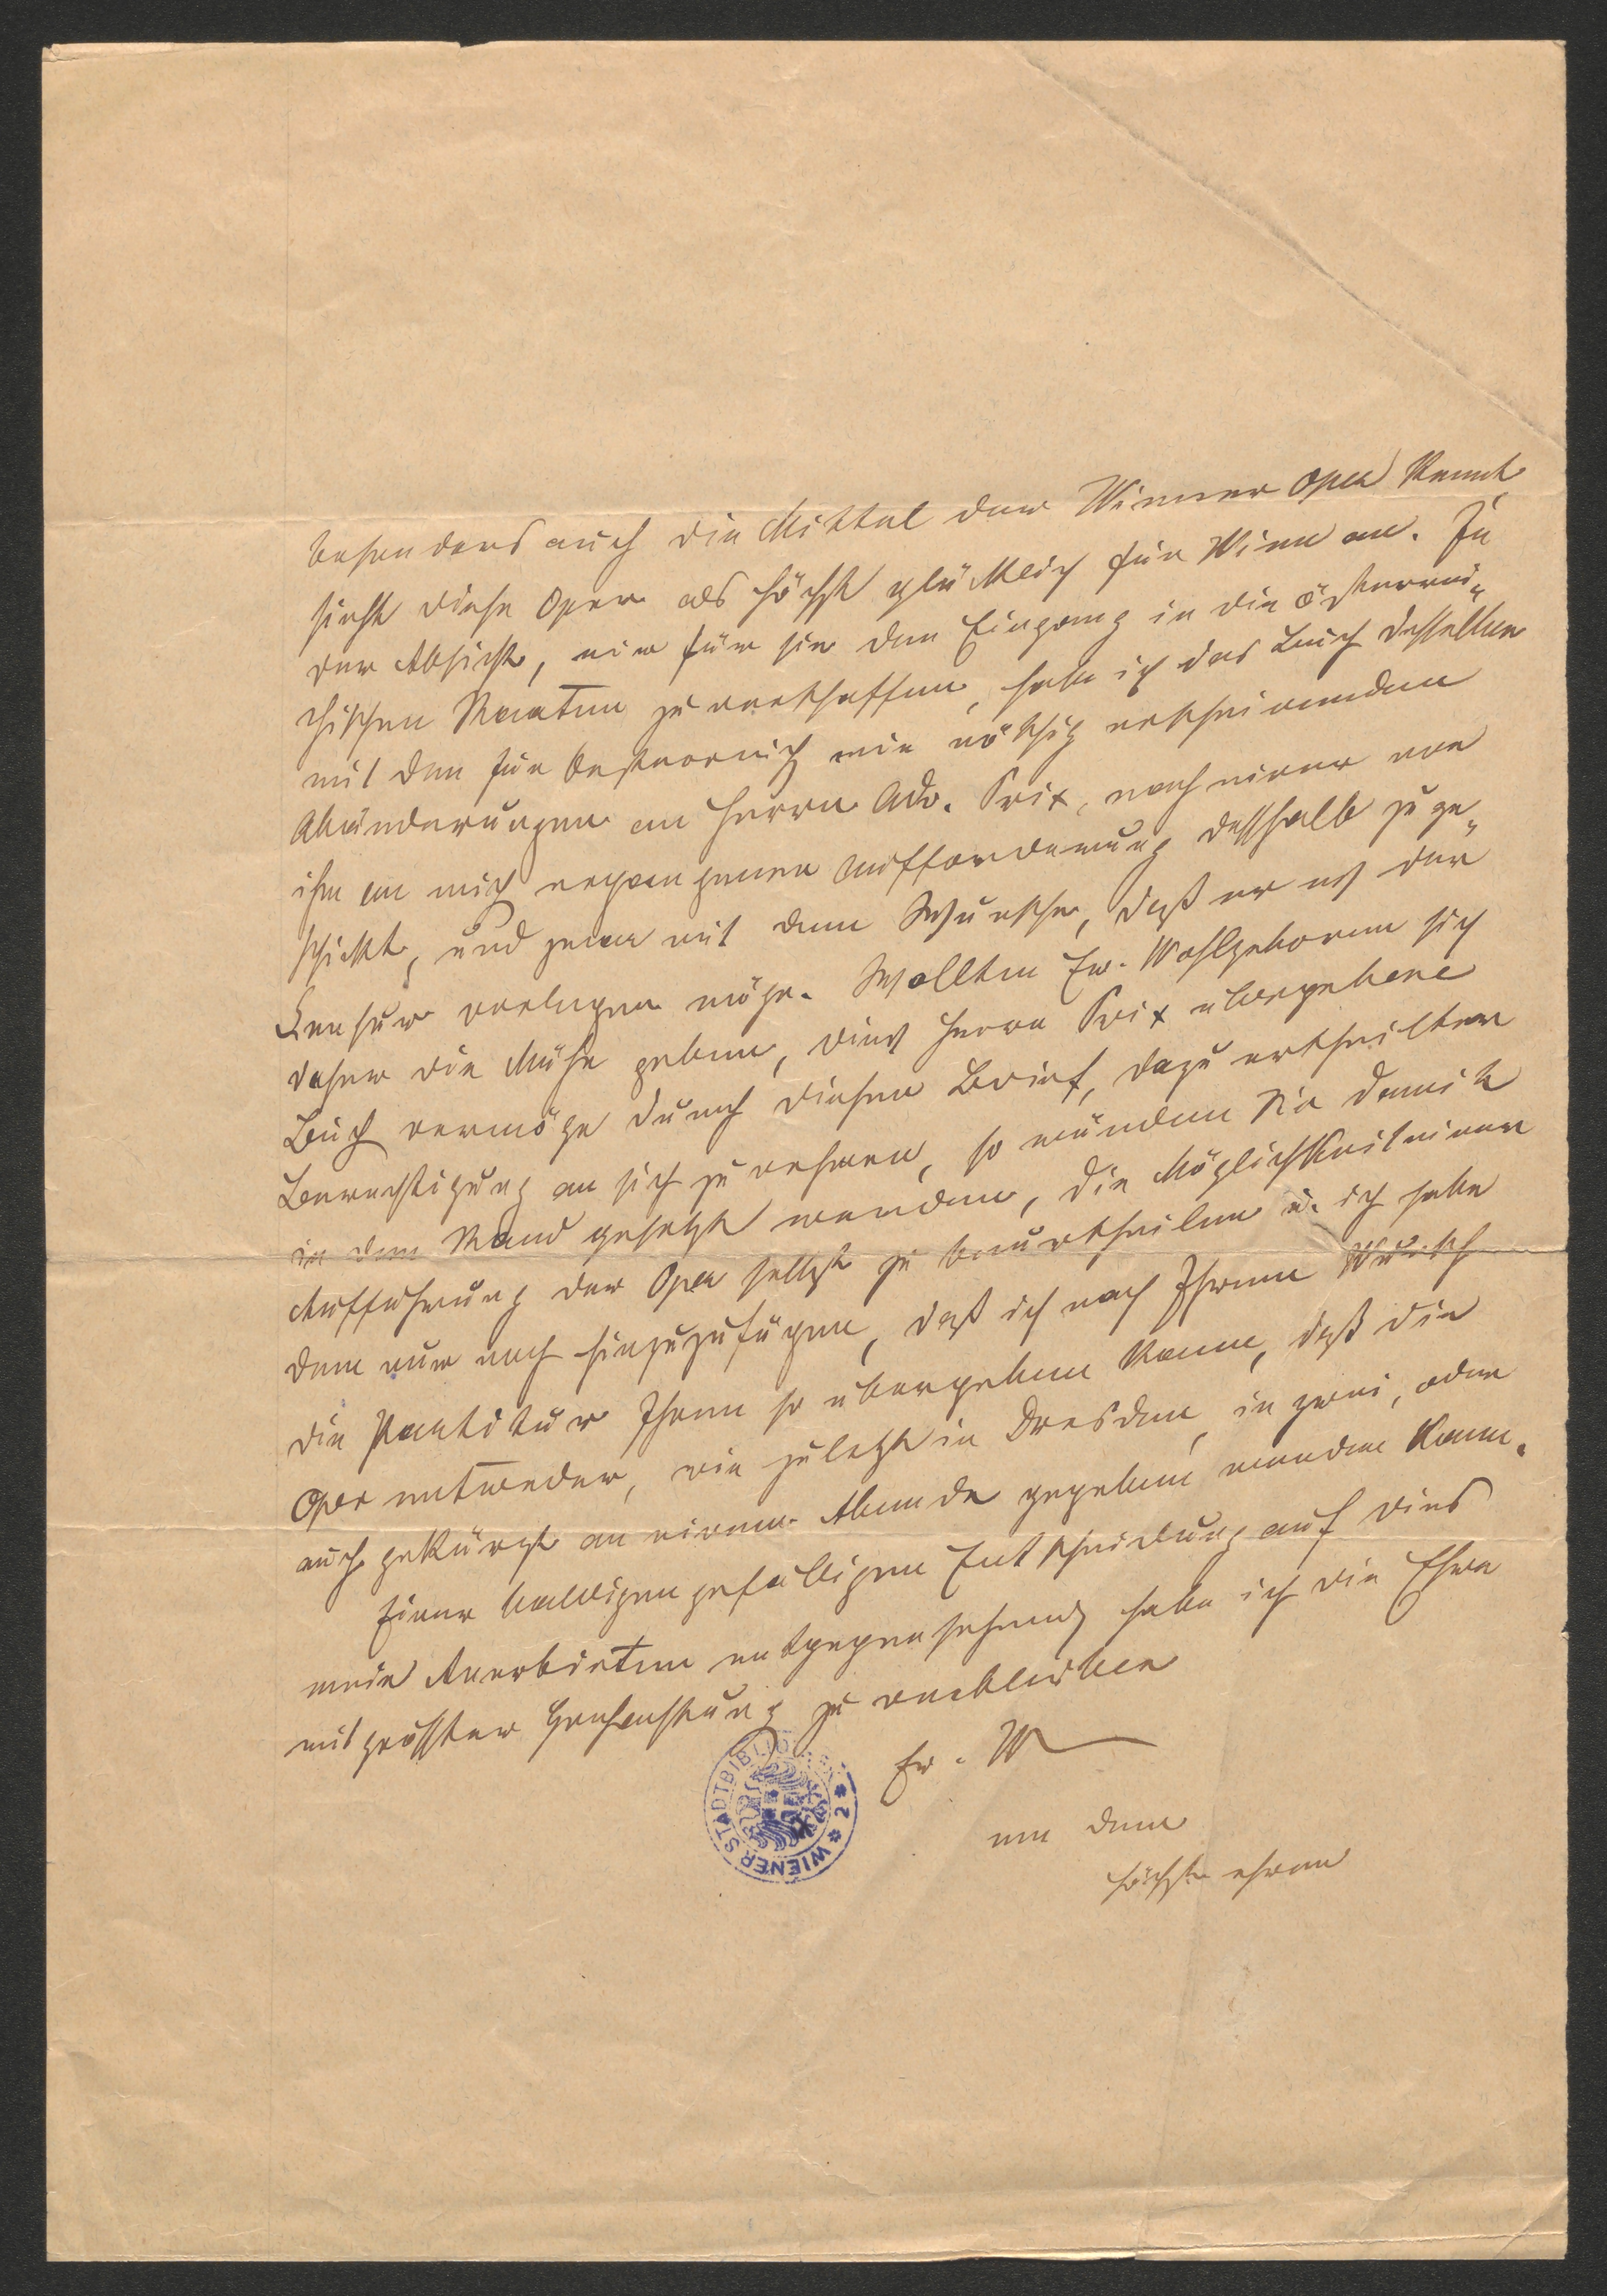 besonders auch die Mittel der Wiener Oper kennt
sieht diese Oper als höchst glücklich für Wien an. In
der Absicht, mir für sie den Eingang in die österrei-
chischen Staaten zu verschaffen, habe ich das Buch desselben
mit den für Oesterreich mir nöthig erscheinenden
Abänderungen an Herrn Adv. Prix, nach einer von
ihm an mich ergangenen Aufforderung desshalb zuge-
schickt, und zwar mit dem Wunsche, daß er es der
Censur vorlegen möge. Wollten Ew. Wohlgeboren sich
daher die Mühe geben, dies Herrn Prix übergebene
Buch vermöge durch diesen Brief, dazu ertheilter
Berechtigung an sich zu nehmen, so würden Sie damit
in den Stand gesetzt werden, die Möglichkeit einer
Aufführung der Oper selbst zu beurtheilen u. ich habe
dem nur noch hinzuzufügen, daß ich nach Ihrem Wunsch
die Partitur Ihnen so übergeben kann, daß die
Oper entweder, wie zuletzt in Dresden, in zwei, oder
auch gekürzt an einem Abende gegeben werden kann.
Einer baldigen gefälligen Entscheidung auf dies
mein Anerbieten entgegensehend habe ich die Ehre
mit grösster Hochachtung zu verbleiben
Ew. W
höchst
WIENER STADTBIBLIOTHEK
* 2 *